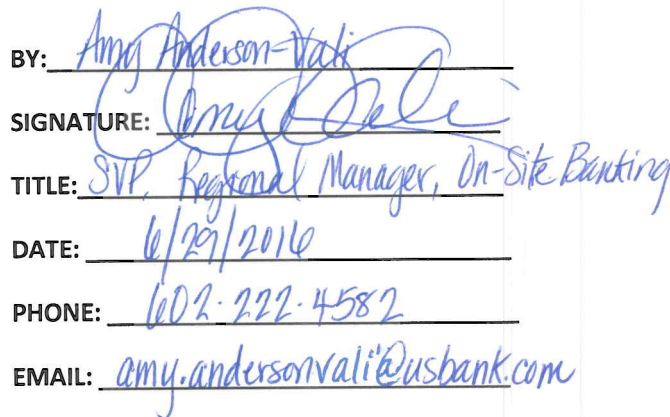 BY: Amy Anderson-Vali
SIGNATURE: Amy
TITLE: SVP, Regional Manager, On-Site Banking
DATE: 6/29/2016
PHONE: 602-222-4582
EMAIL: amy.andersonvali@usbank.com